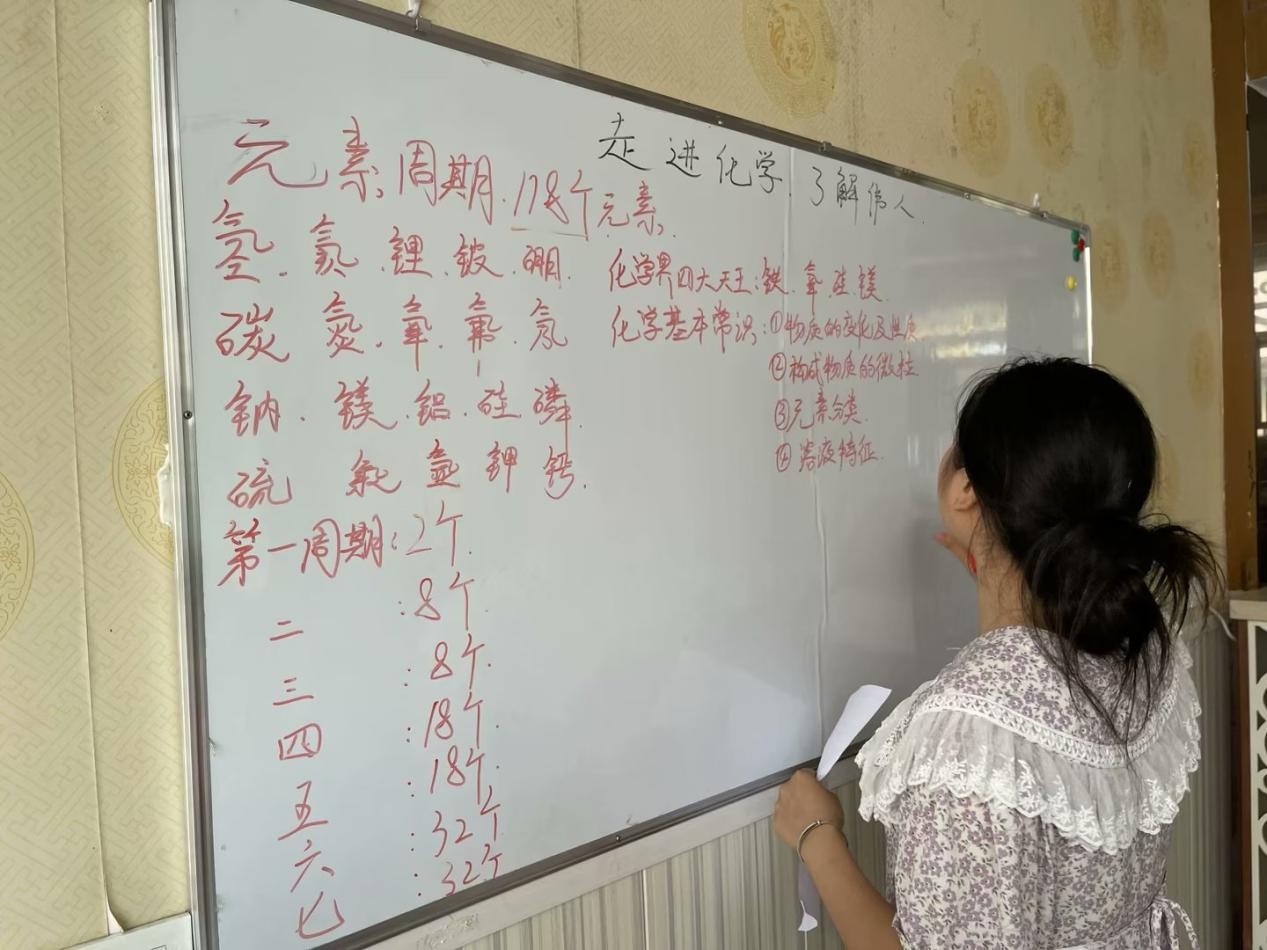 走进化学.了解伟人.
元素周期.118个元素.
氢.氦.锂.铍.硼.
碳 氮.氧.氟.氖
钠.镁.铝.硅.磷.
硫 氯.氩 钾 钙.
第一周期:2个.
二:8个.
三:8个.
四:18个.
五:18个.
六:32个
七:32个
化学界四大天王:铁.氧.硅.镁.
化学基本常识:①物质的变化及性质
②构成物质的微粒
③元素分类.
④溶液特征.